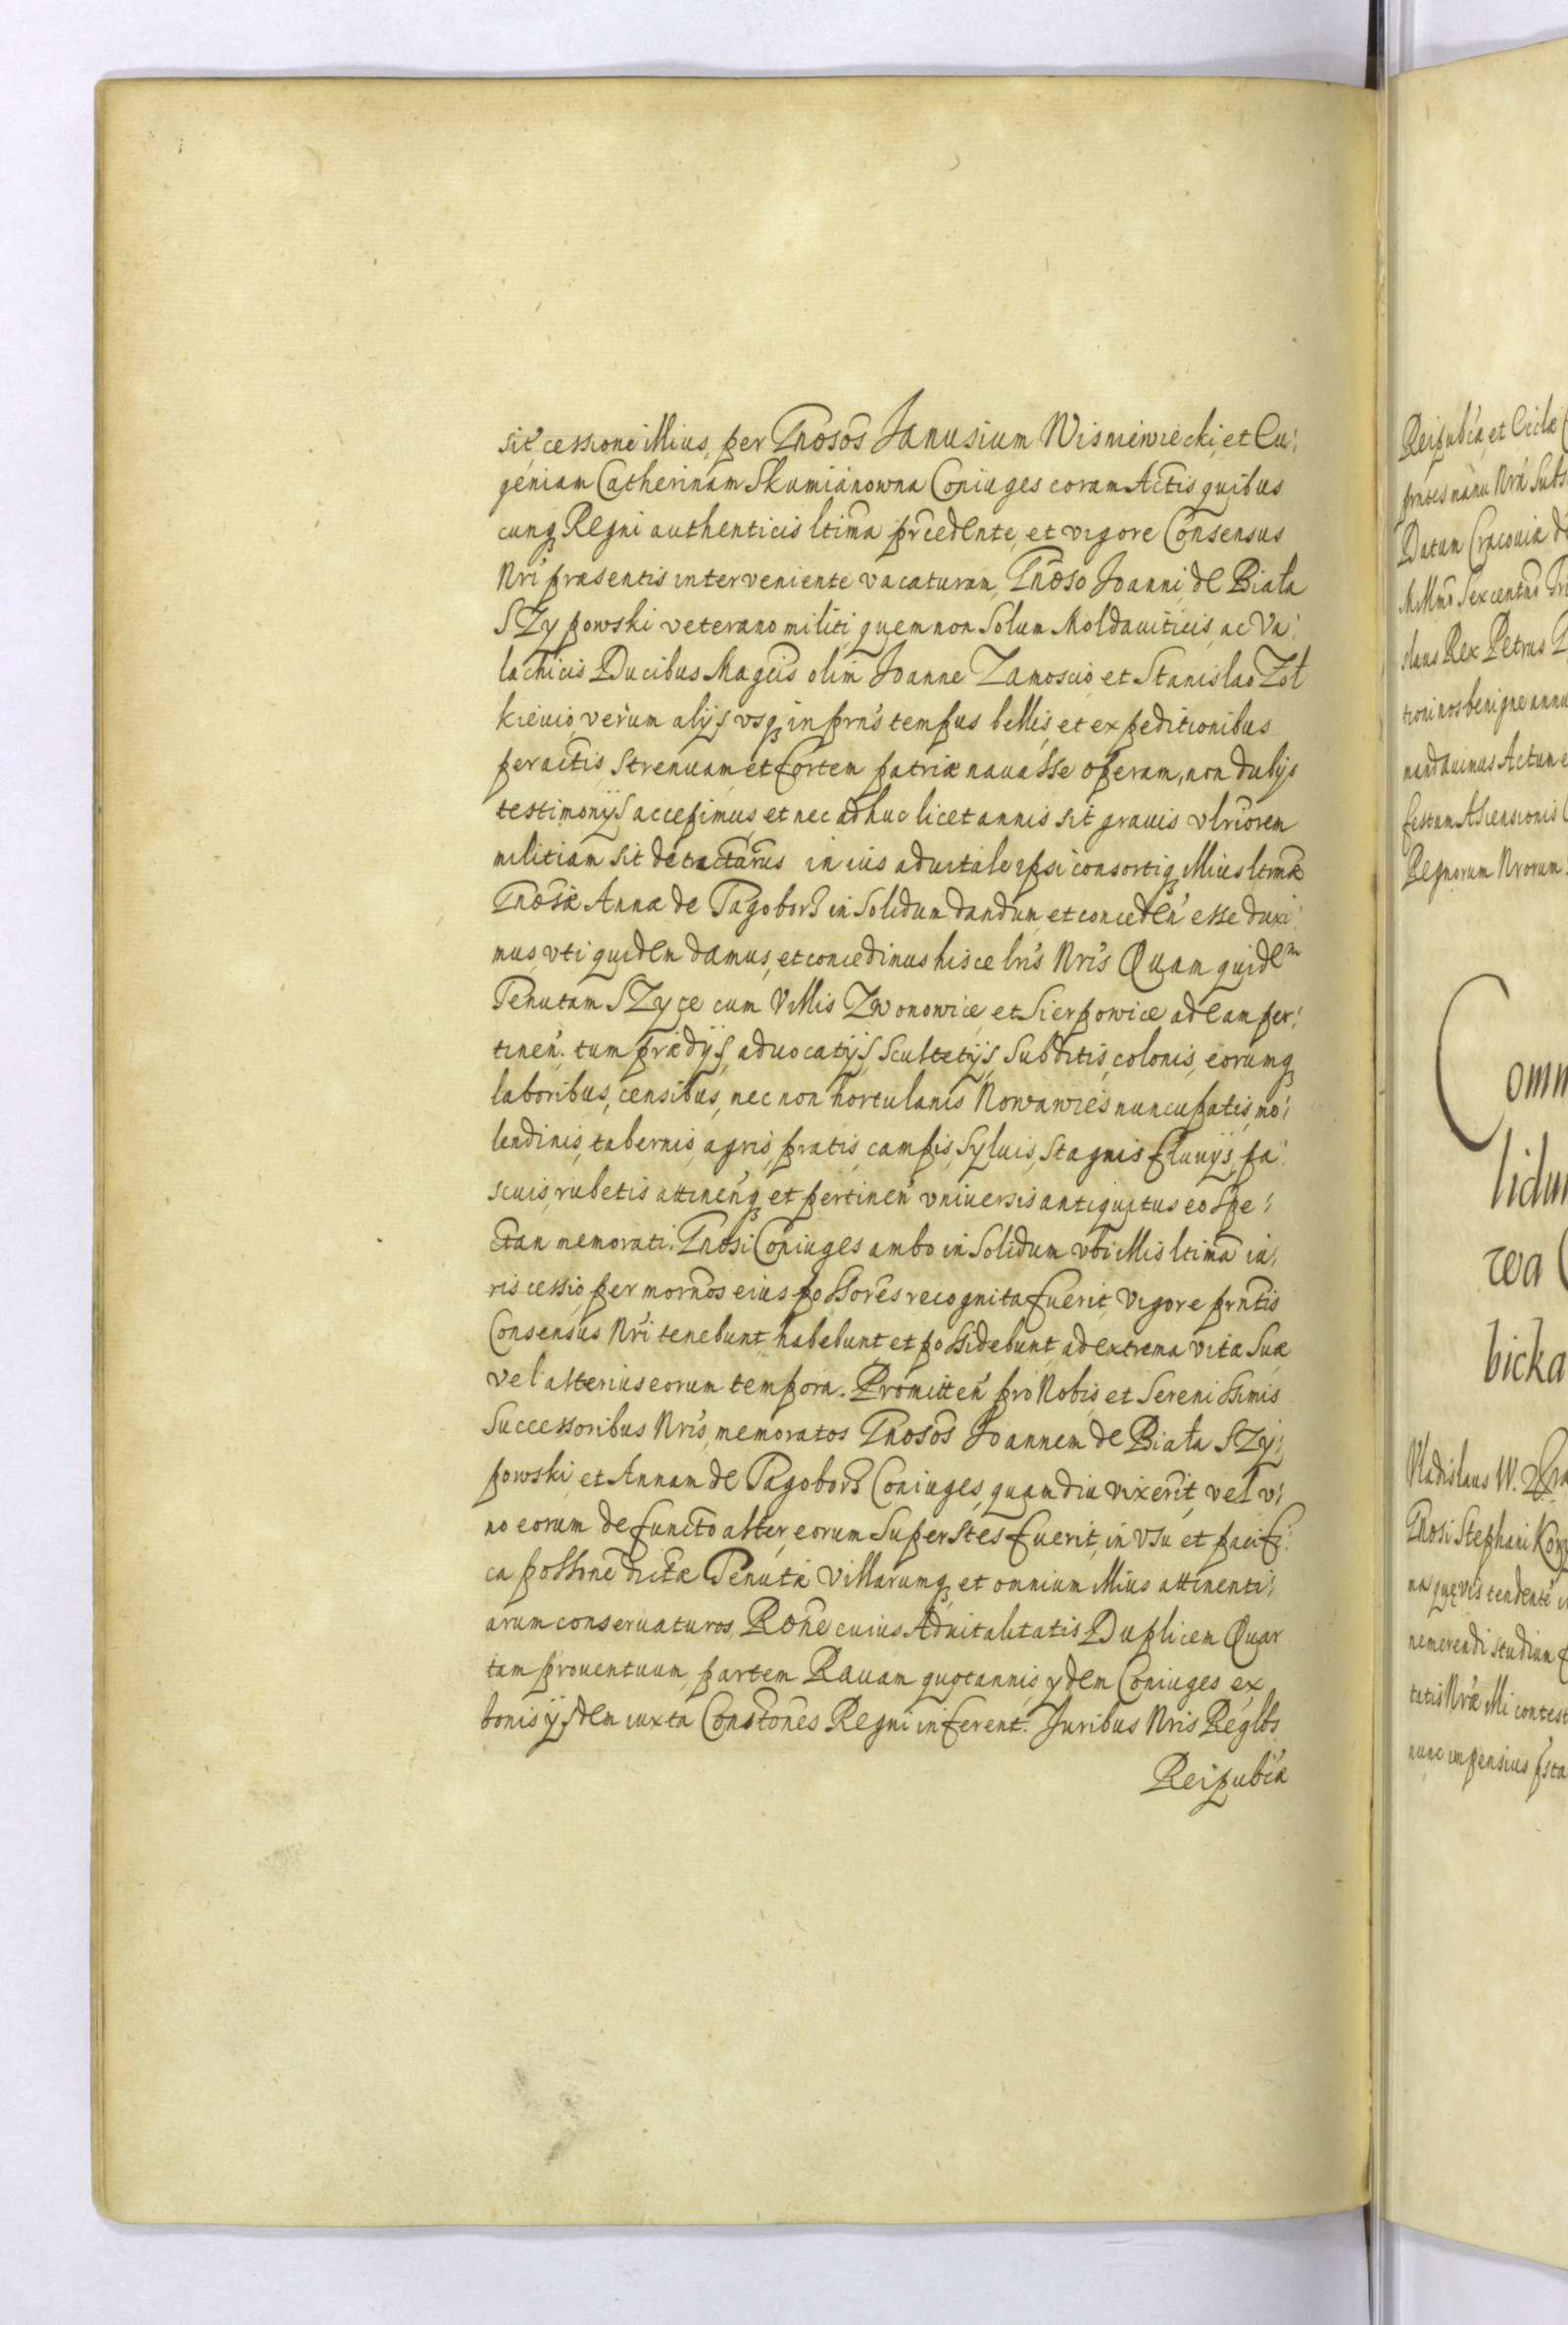 sit, cessione illius, per Gnosos Janusium Wisniewiecki, et Eu:
geniam Catherinam Skumianowna Coniuges coram Actis quibus
cunq Regni authenticis ltima prcedente, et vigore Consensus
Nri praesentis interveniente vacaturam, Gnoso Joanni de Biała
SZypowski veterano militi, quem non Solum Moldauiticis, ac Va:
lachicis Ducibus Magcis olim Joanne Zamoscio et Stanislao Zoł
kievio, verum alijs vsq in prns tempus bellis, et expeditionibus
peractis, Strenuam et fortem patriae nauasse operam, non dubijs
testimonijs accepimus, et nec adhuc licet annis sit grauis vlriorem
militiam sit detractarus in ius aduitale ipsi consortiq illius ltmae
Gnosae Annae de Pagobors in Solidum dandum, et conceden esse duxi:
mus, vti quidem damus, et concedimus hisce lris Nris Quam quidem
Tenutam SZyce cum Villis Zwonowice, et Sierpowice ad eam per:
tinen. tum praedijs, aduocatijs, Scultetijs, Subditis, colonis, eorumq
laboribus, censibus, nec non hortulanis Nowawies nuncupatis, mo:
lendinis, tabernis, agris, pratis, campis, Syluis, Stagnis fluuijs, pa:
scuis, rubetis attinenq et pertinen vniuersis antiquitus eo Spe:
ctan memorati. Gnosi Coniuges ambo in Solidum vbi illis ltima iu:
ris cessio, per mornos eius possores recognita fuerit, vigore prntis
Consensus Nri tenebunt, habebunt et possidebunt, ad extrema vitae Suae
vel alterius eorum tempora. Promitten pro Nobis, et Serenissimis
Successoribus Nris, memoratos Gnosos Joannem de Biała SZy:
powski, et Annam de Pagobors Coniuges, quamdiu vixerit, vel v:
no eorum defuncto alter, eorum Superstes fuerit, in vsu et pacifi:
ca possione dictae Tenutae Villarumq, et omnium illius attinenti:
arum conseruaturos, Rone cuius Aduitalitatis Duplicem Quar
tam prouentuum, partem Rauam quotannis, ydem Coniuges ex
bonis ijsdem iuxta Constones Regni inferent. Juribus Nris Reglbs
Reipublcae
Reipublcae, et Cclae
prntes manu Nra Subs
Datum Cracoviae
Mllmo Sexcentmo Tri
slaus Rex Petrus
tioni nos benigne annu
mandauimus Actum
festum Ascensionis
Regnorum Nrorum
Comm
lidu
wa
bicka
Vladislaus IV.
Gnosi Stephani
tendente
nemerendi studium
tatis Nrae illi contest
nunc impensius